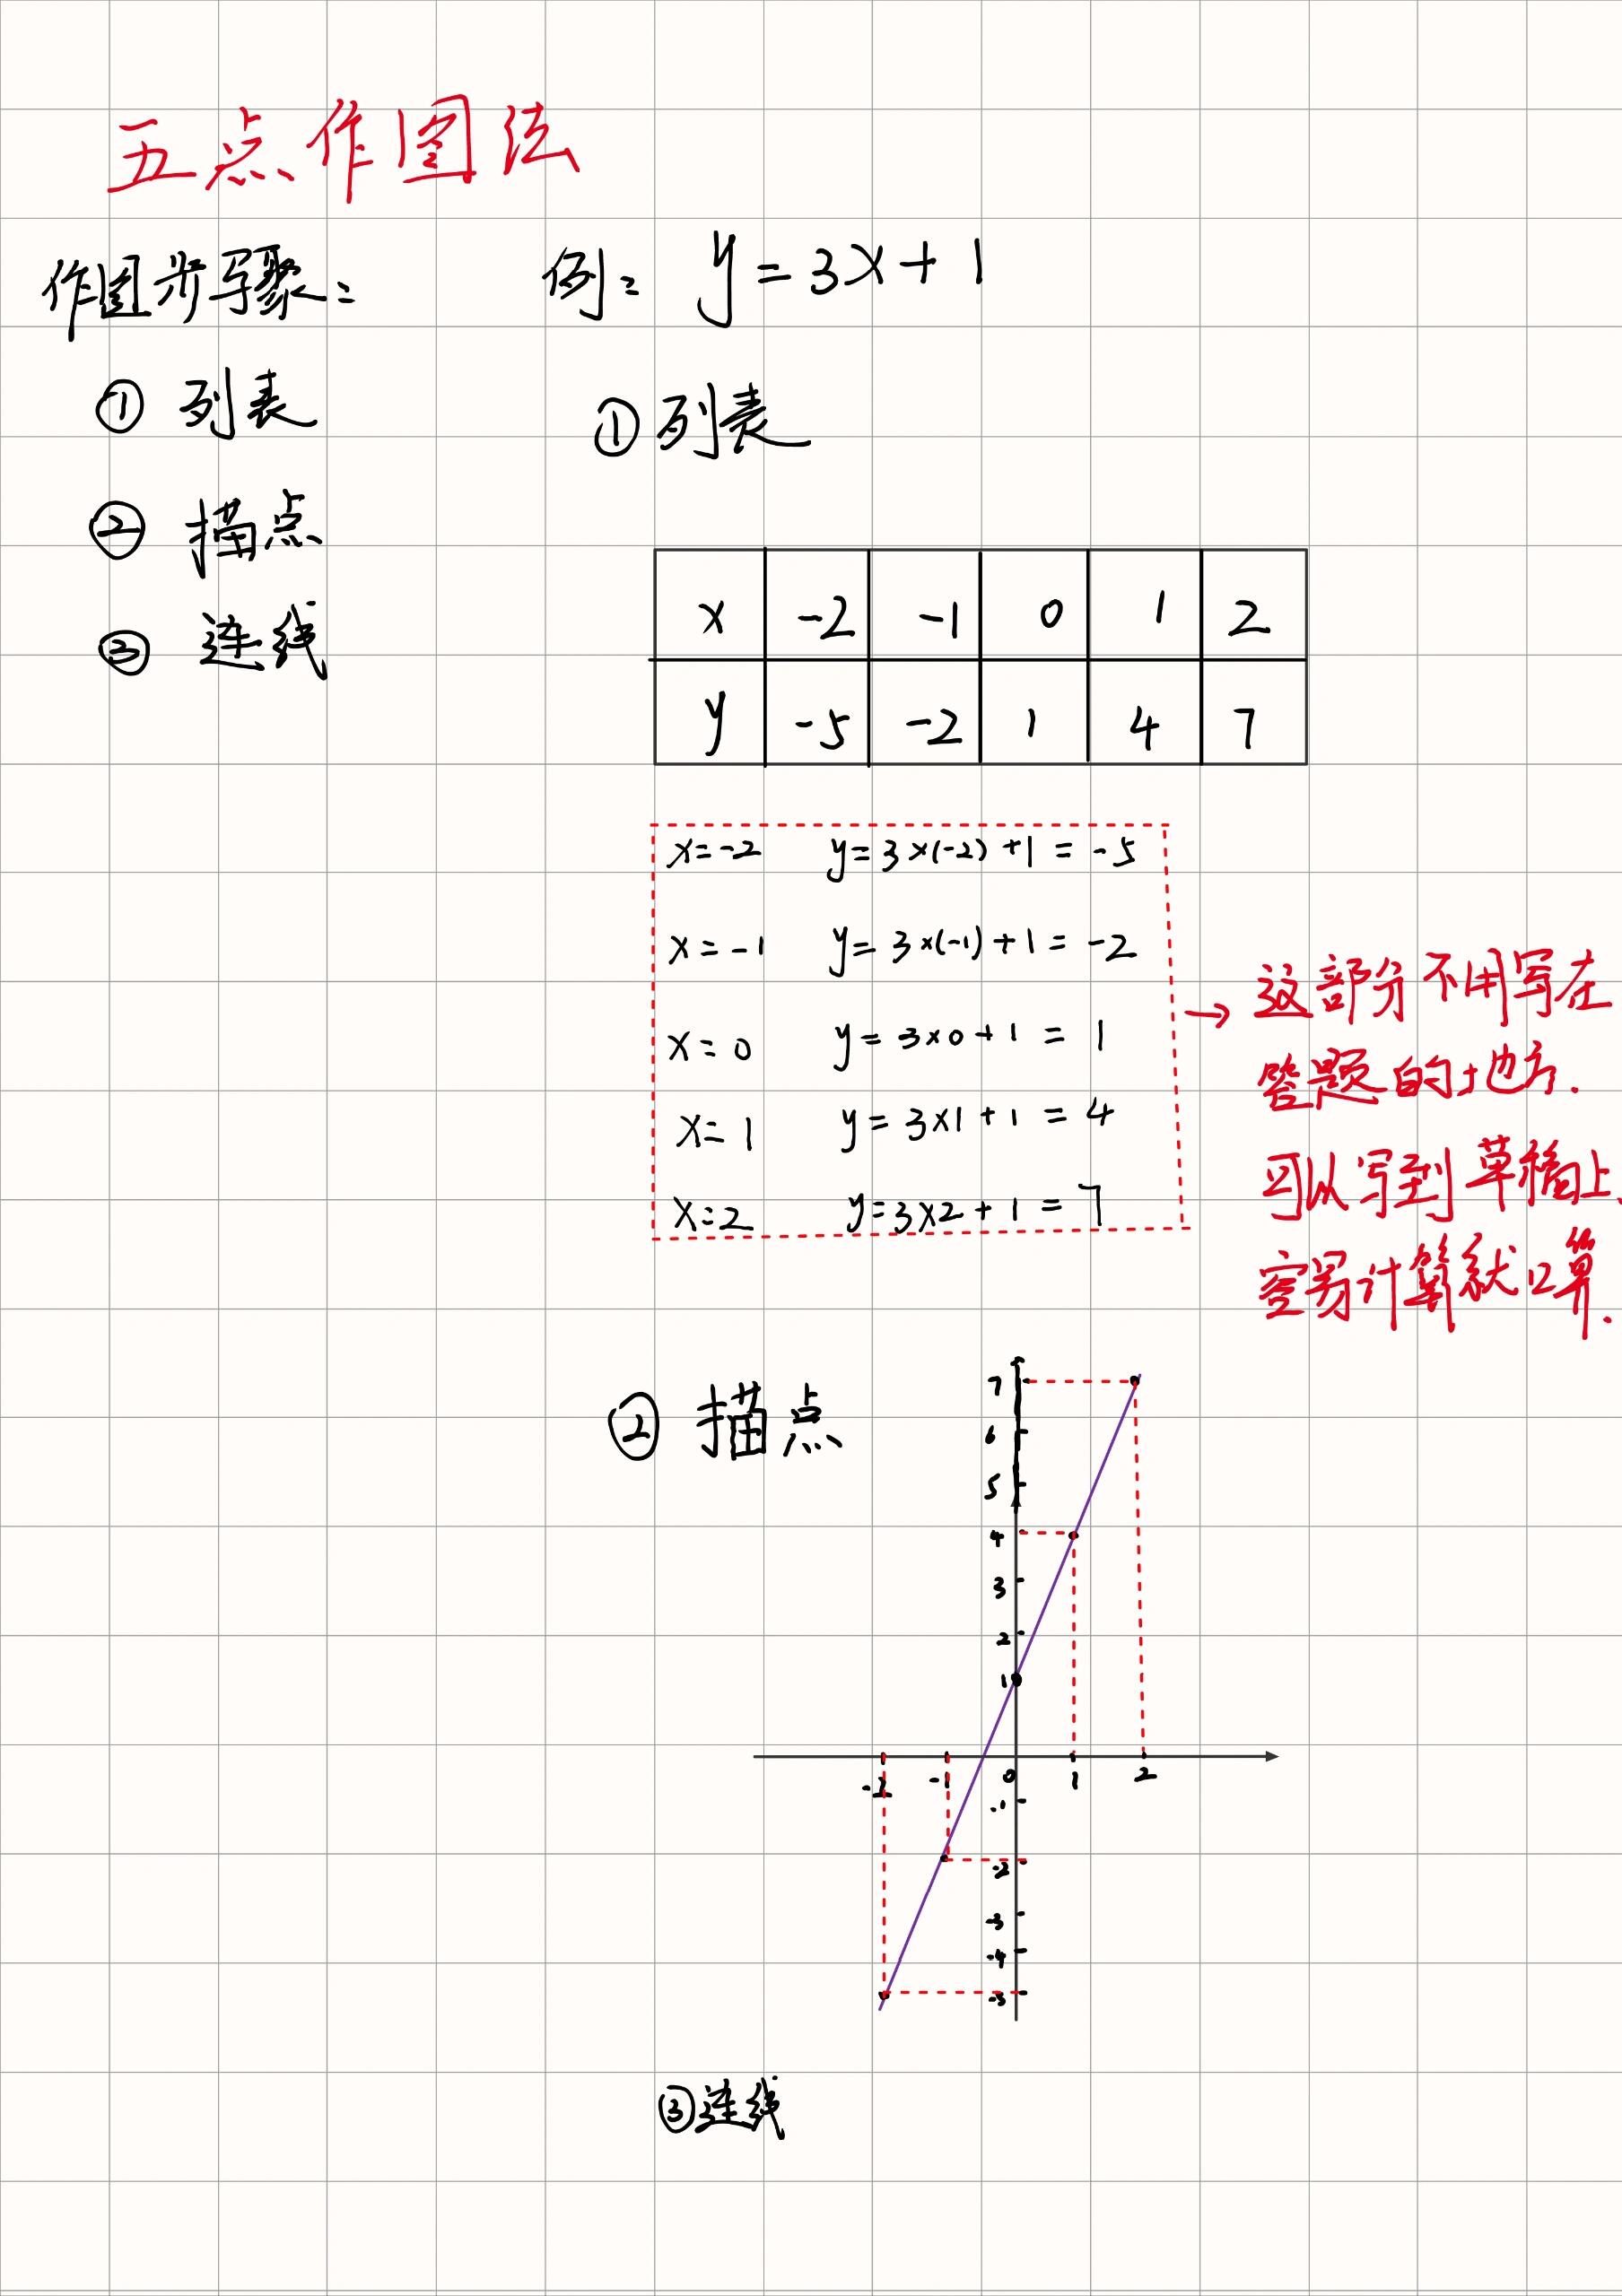 五点作图法
作图步骤：
① 列表
② 描点
③ 连线
例： y=3x+1
①列表
x -2 -1 0 1 2
y -5 -2 1 4 7
x=-2 y=3×(-2)+1=-5
x=-1 y=3×(-1)+1=-2
x=0 y=3×0+1=1
x=1 y=3×1+1=4
x=2 y=3×2+1=7
→ 这部分不用写在
答题的地方.
可以写到草稿上.
容易计算就口算.
② 描点
7
6
5
4
3
2
1
-2 -1 0 1 2
-1
-2
-3
-4
-5
③连线